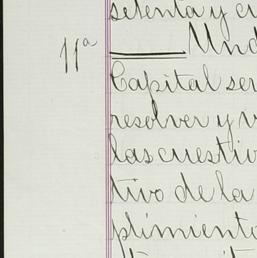 setenta y cu
11ª Und
Capital ser
resolver y v
las cuestio
tivo de la
plimiento